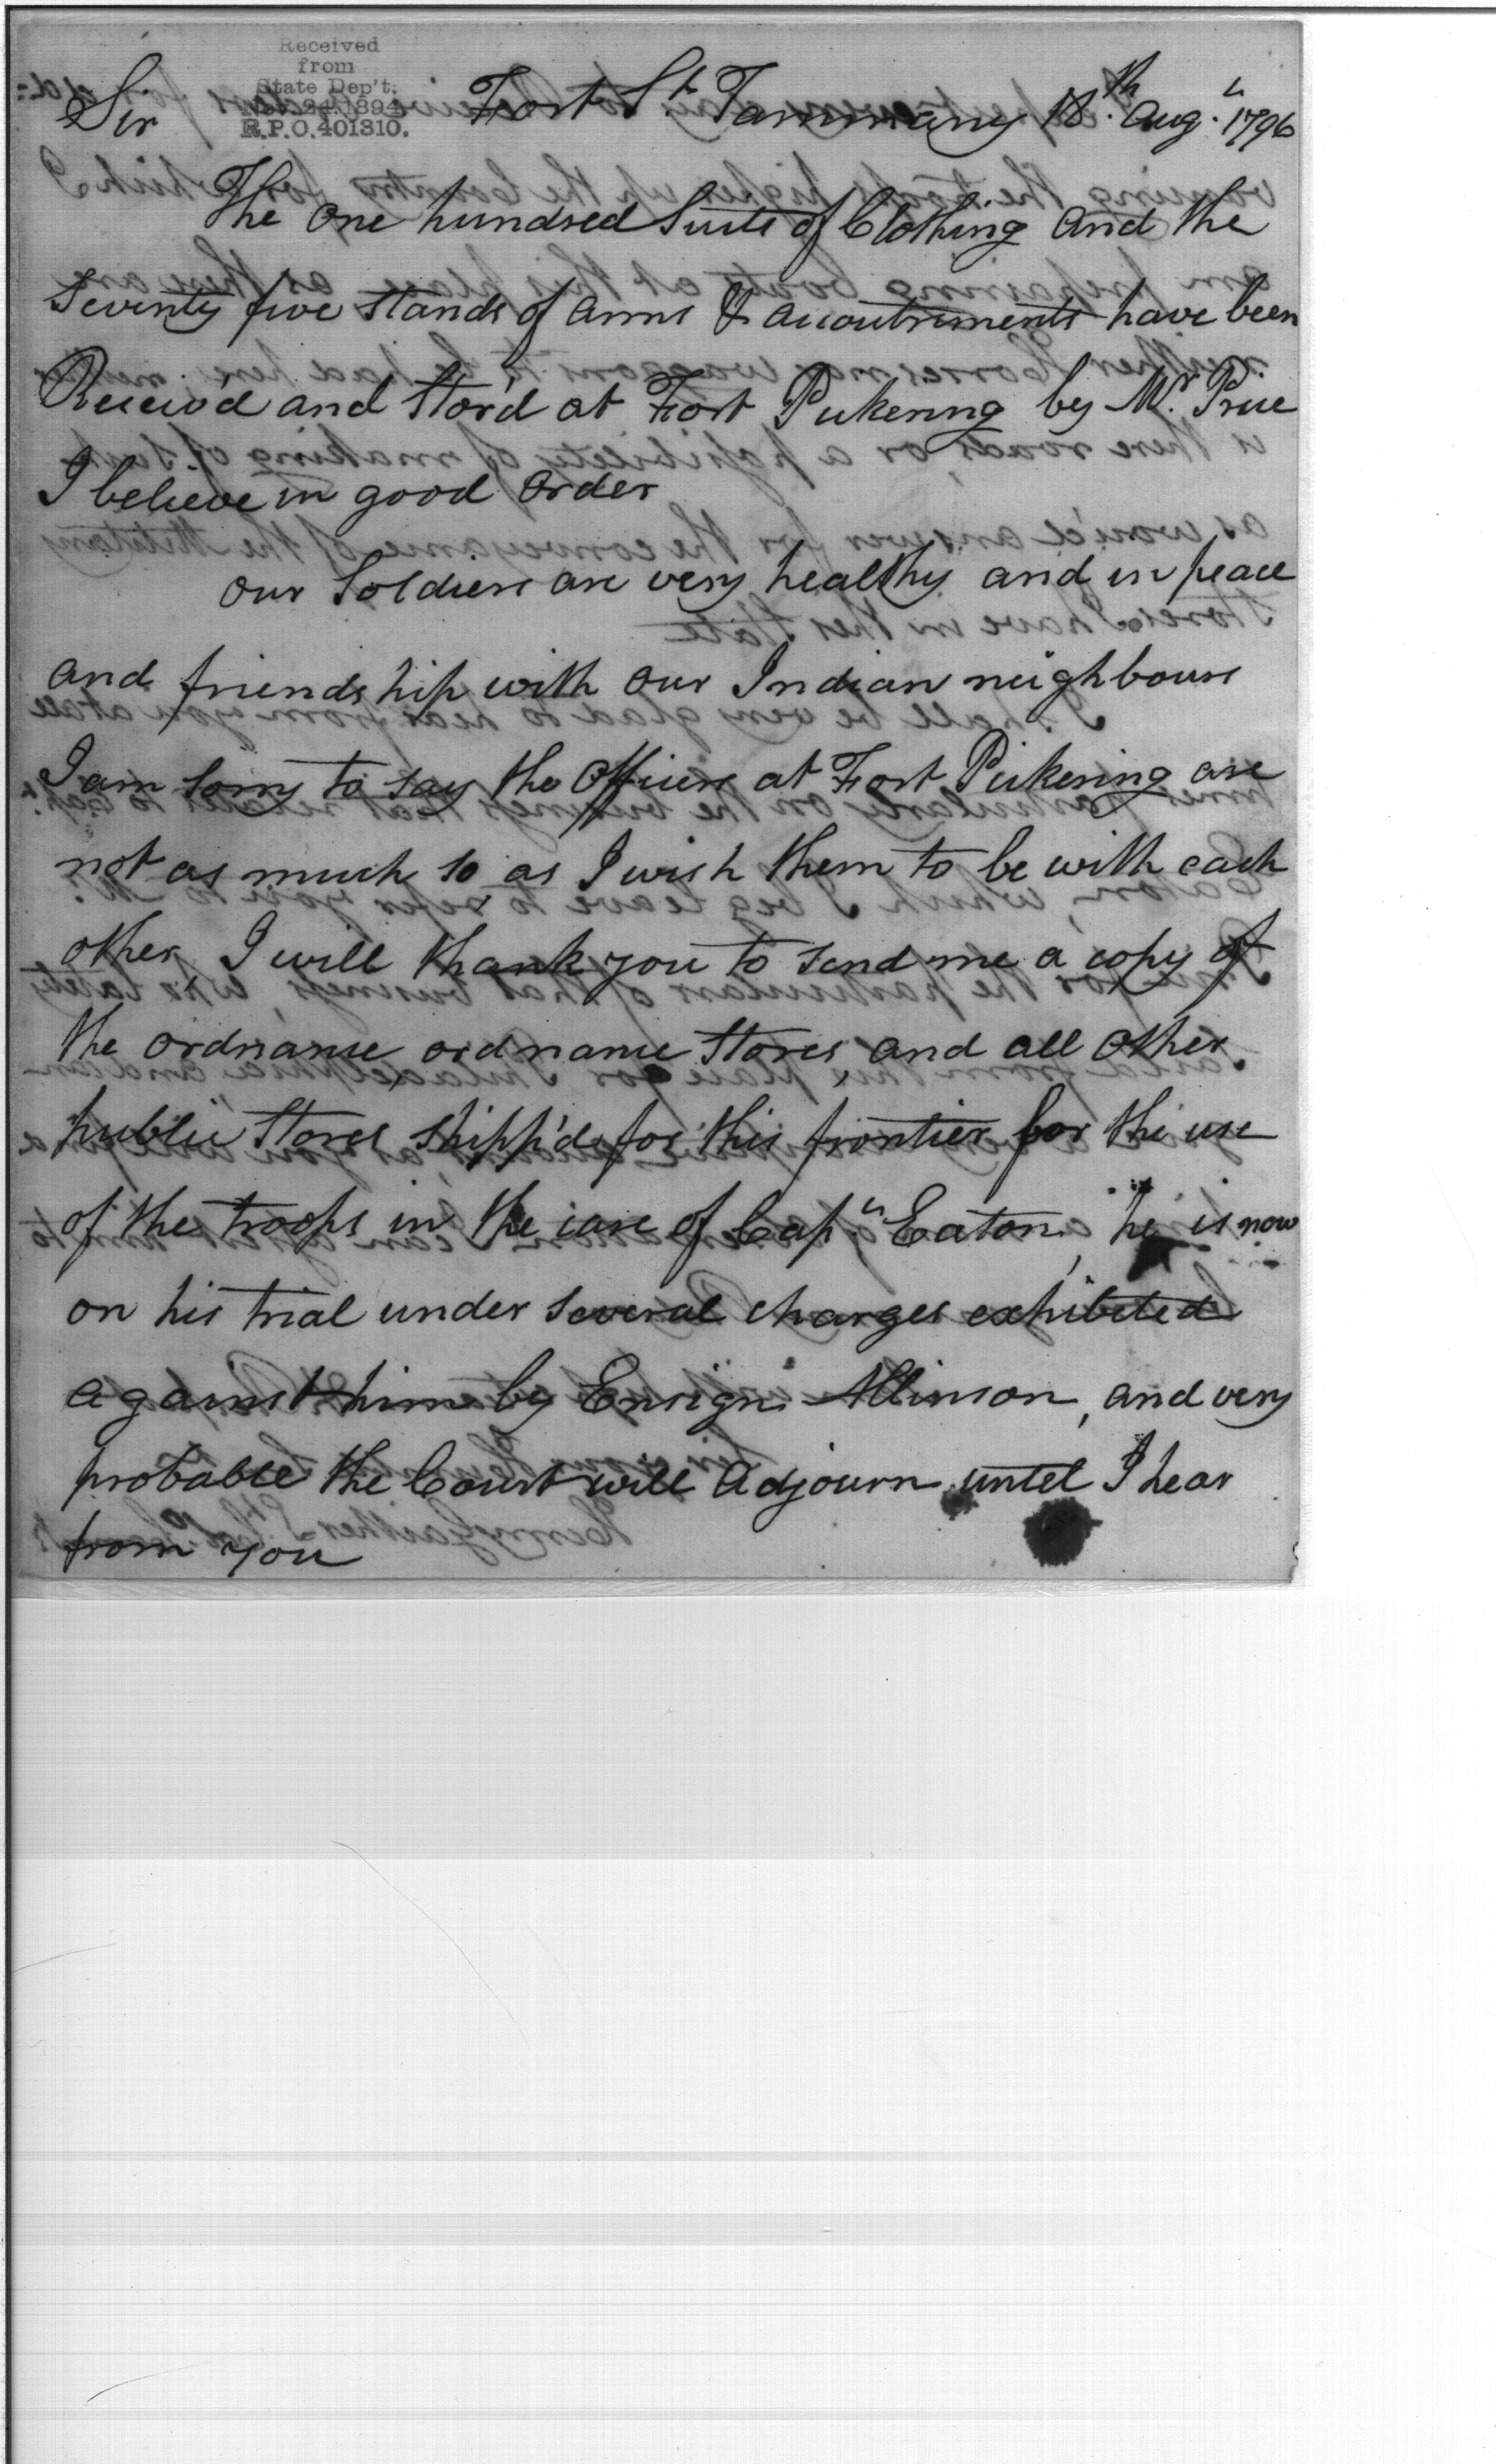 Received
from
State Dep't.
Nov. 24. 1894
R.P.O. 401310.
Sir Fort St. Tammany 18.th Augt 1796
The one hundred Suits of Clothing and the
Seventy five stands of arms & accoutrements have been
Receiv'd and Stor'd at Fort Pickering by Mr. Price
I believe in good order
our Soldiers are very healthy and in peace
and friendship with our Indian neighbours
I am sorry to say the officers at Fort Pickering are
not as much so as I wish them to be with each
other I will thank you to send me a copy of
the ordnance ordnance Stores and all other
public Stores shipp'd for this frontier for the use
of the troops in the care of Capn Eaton, he is now
on his trial under several charges exhibited
against him by Ensign Allinson, and very
probable the Court will adjourn until I hear
from you